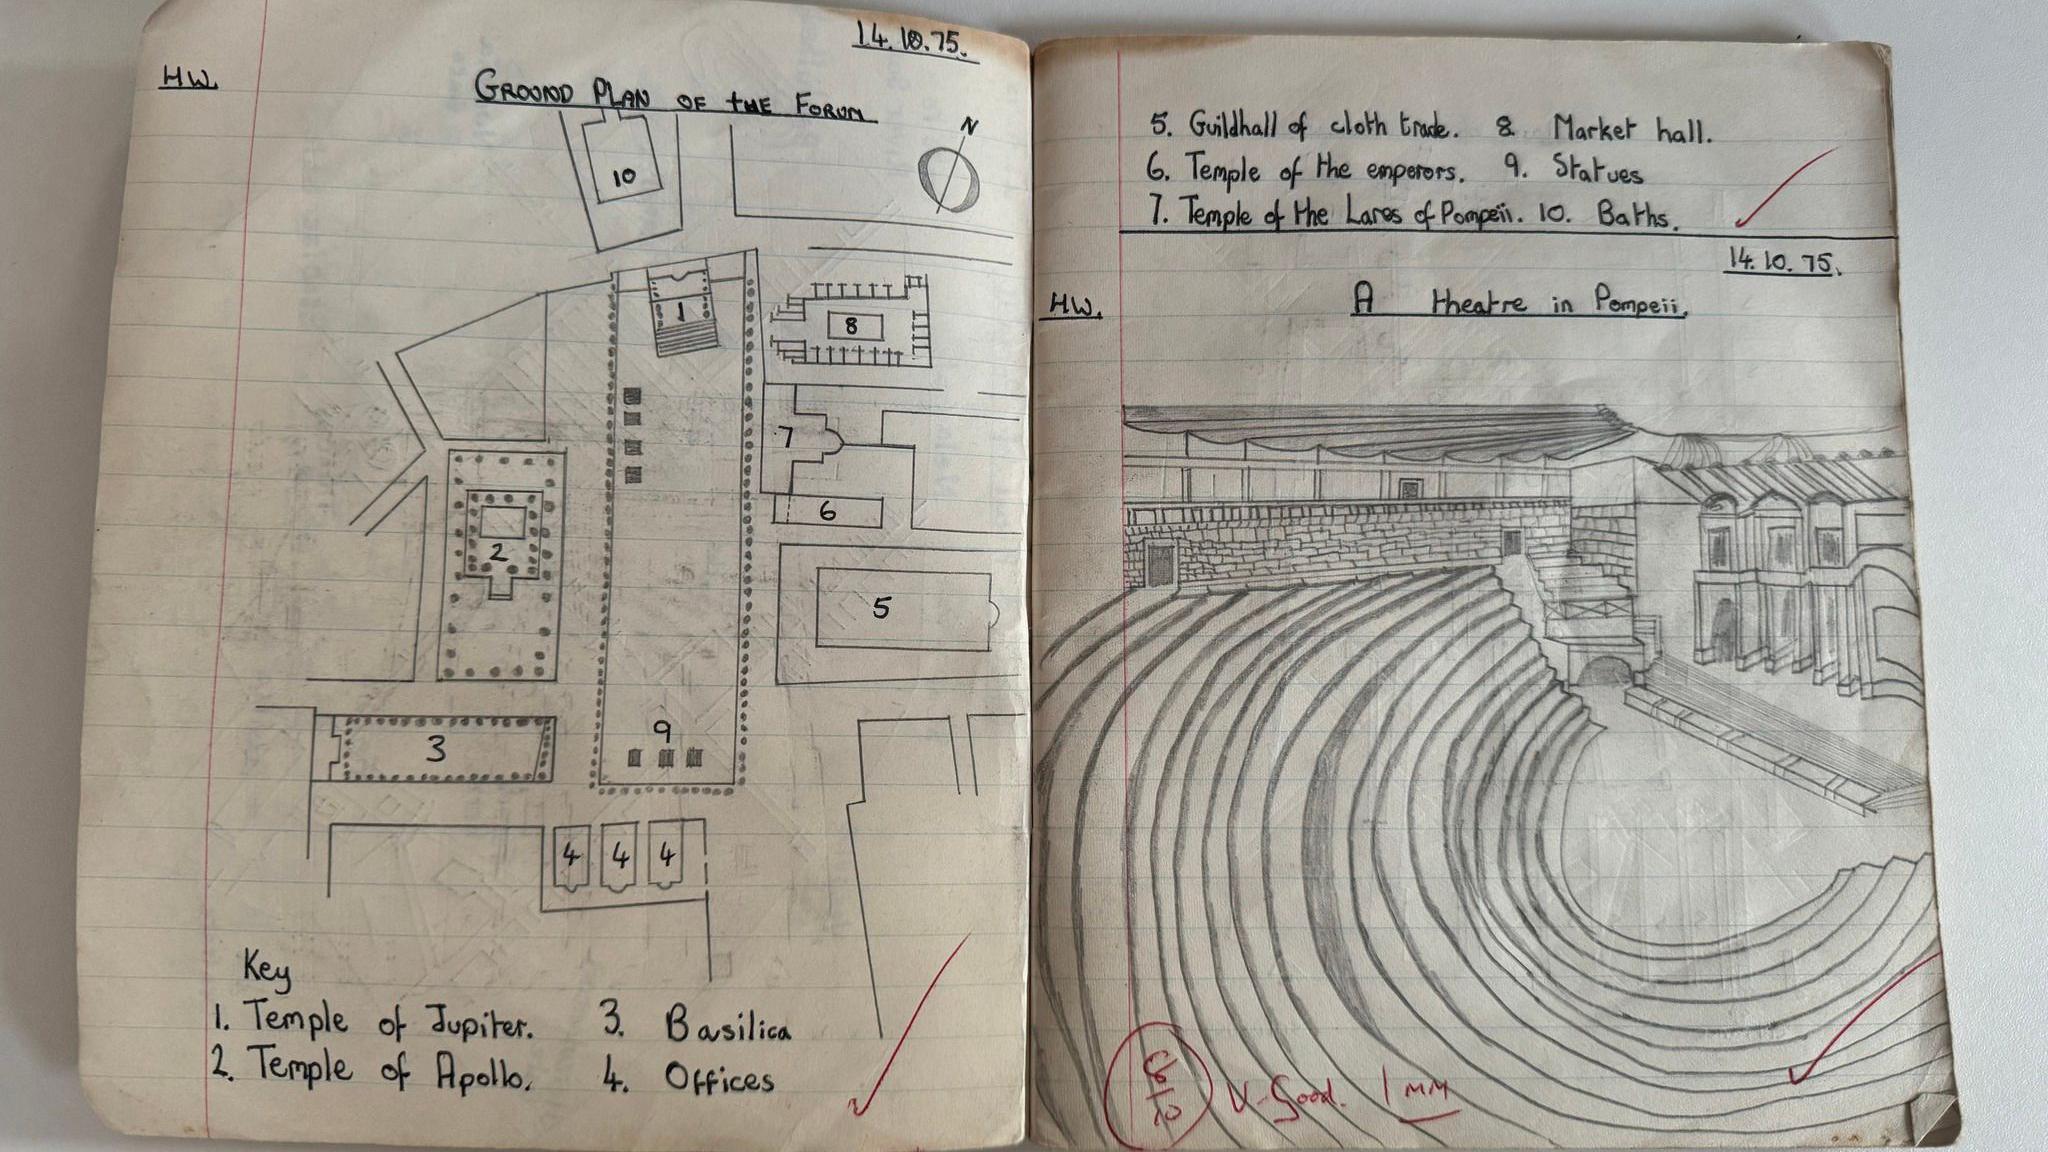 14.10.75.
HW.
GROUND PLAN OF THE FORUM
N
10
1
8
7
2
6
5
9
3
4 4 4
Key
1. Temple of Jupiter. 3. Basilica
2. Temple of Apollo. 4. Offices
5. Guildhall of cloth trade. 8 Market hall.
6. Temple of the emperors. 9. Statues
7. Temple of the Lares of Pompeii. 10. Baths.
14.10.75.
HW. A theatre in Pompeii.
V-Good. 1 MM